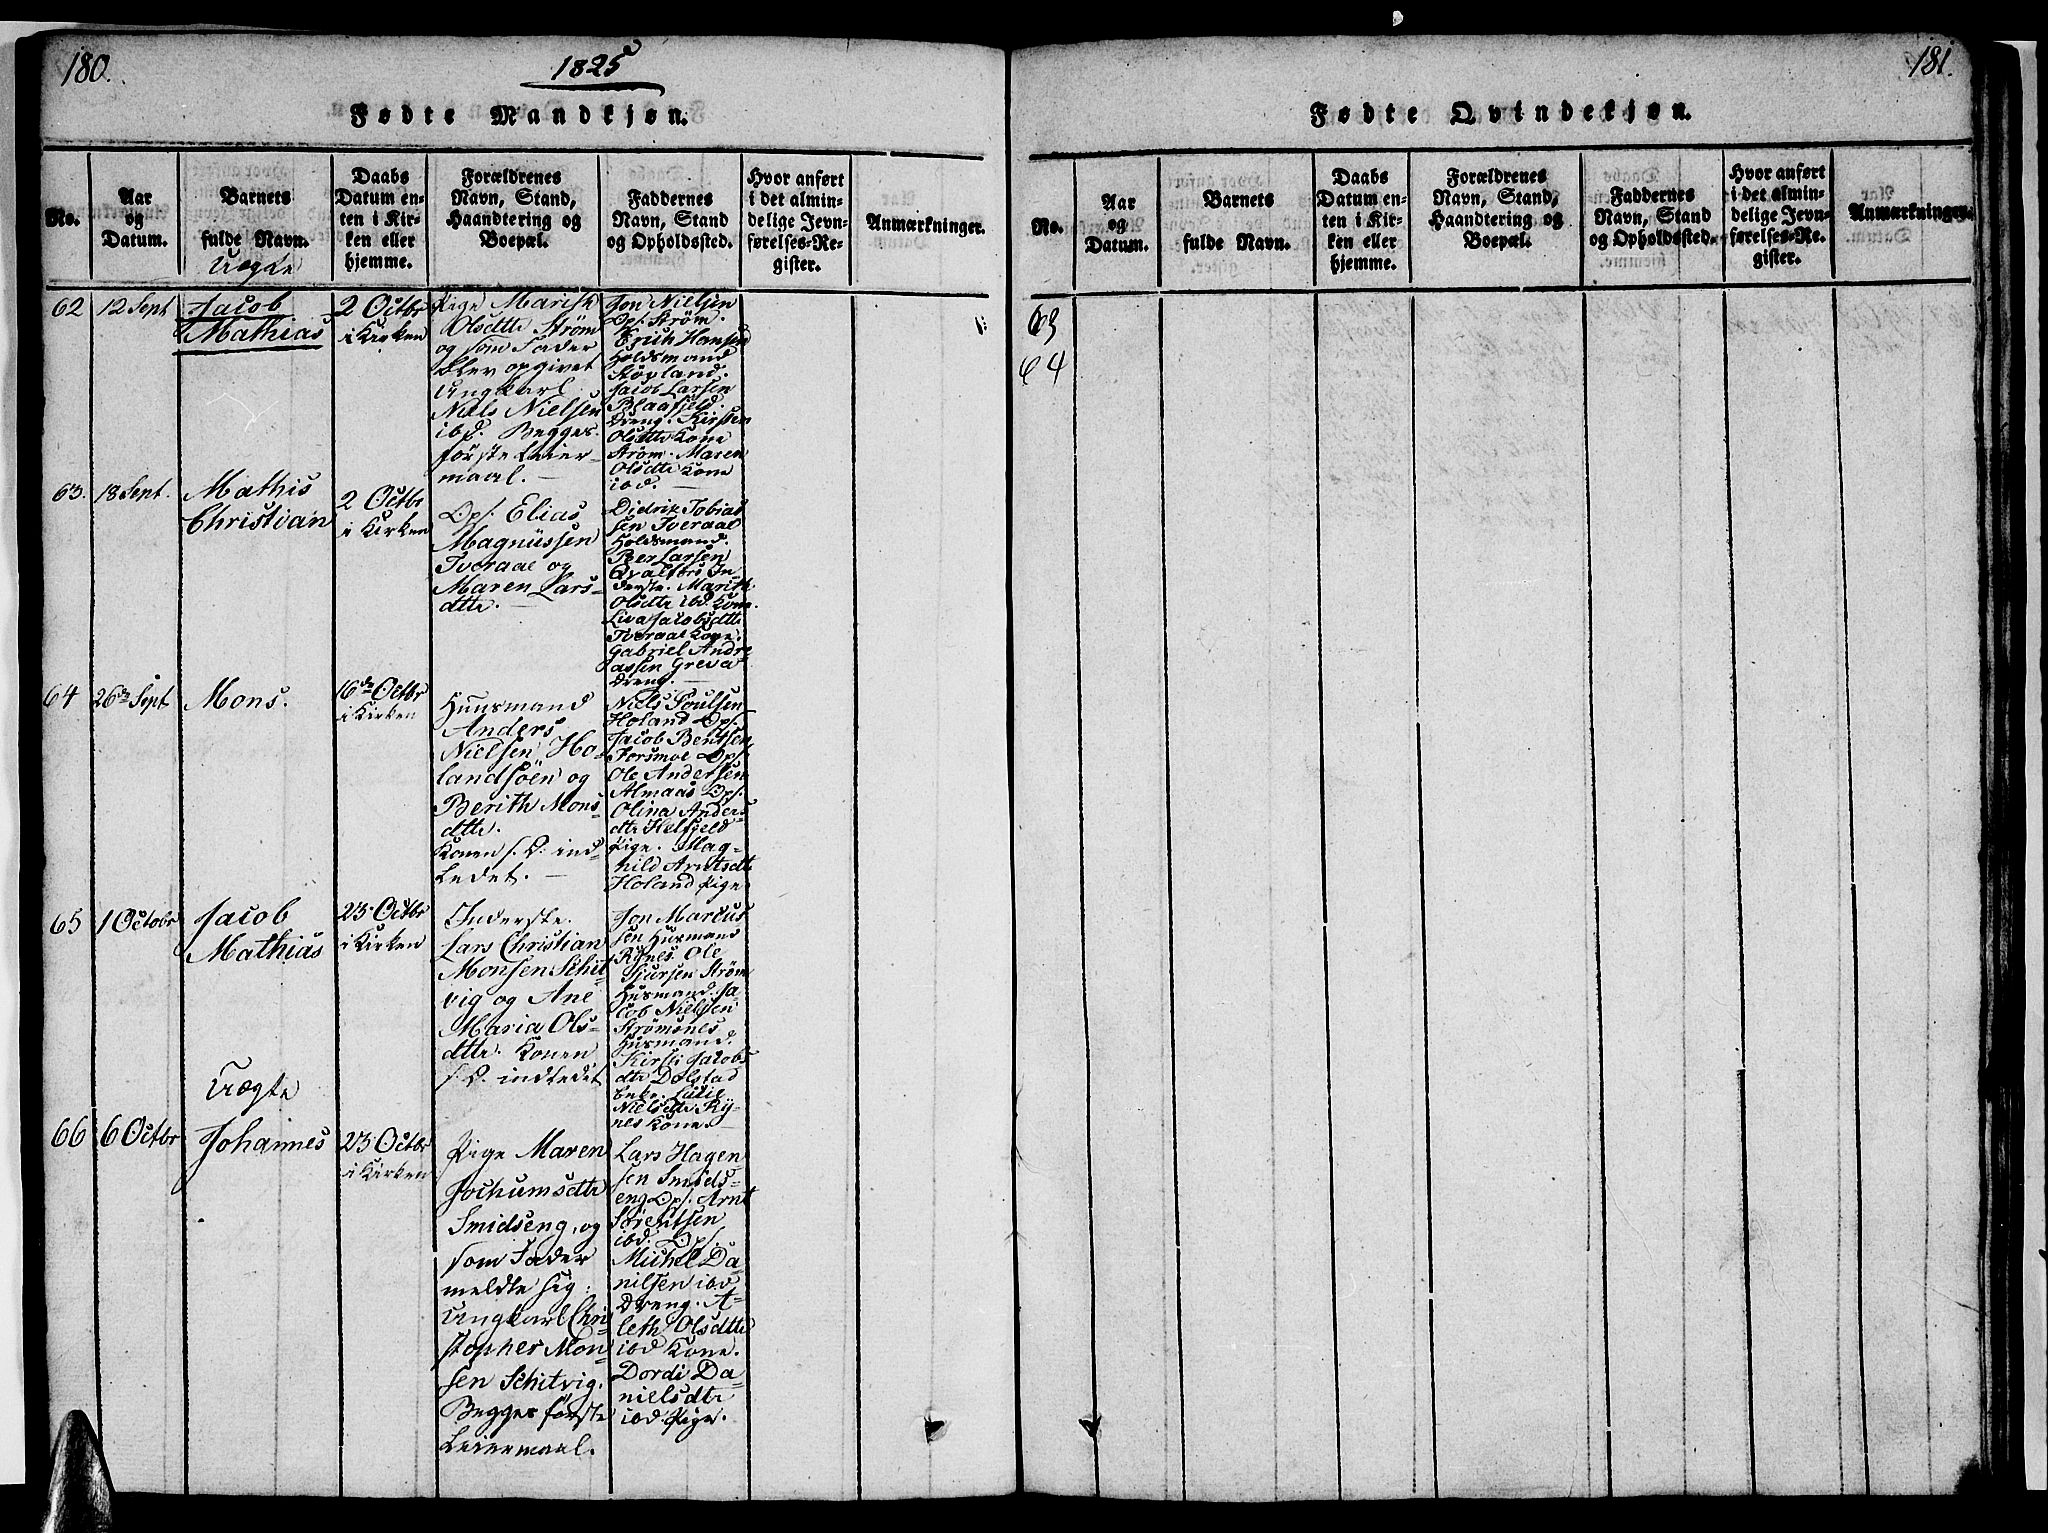 180.
1825
Fødte Mandkjøn.
No.
Aar
og
Datum.
Barnets
fulde Navn.
Daabs
Datum en-
ten i Kir-
ken eller
hjemme.
Forældrenes
Navn, Stand,
Haandtering og
Boepæl.
Faddernes
Navn, Stand
og Opholdssted.
Hvor anført
i det almin-
delige Jevn-
førelses-Re-
gister.
Anmærkninger.
Uægte
62
12 Sept
Jacob
Mathias
2 Octbr
i Kirken
Pige Marith
Olsdtr Strøm
og som Fader
blev opgivet
Ungkarl
Niels Nielsen
ibd. Begges
første Leier-
maal.
Jon Nielsen
Ops. Strøm.
Erich Hansen
Holdsmand
Stopland.
Jacob Larsen
Blaafjeld
Dreng. Kirsten
Olsdtr Kone
Strøm. Maren
Olsdtr Kone
ibd.
63.
18 Sept.
Mathis
Christian
2 Octbr
i Kirken
Ops. Elias
Magnussen
Tveraae og
Maren Lars-
dtr.
Didrik Tobias
sen Tveraae
Holdsmand.
Per Larsen
Qvalfors In-
derste. Marith
Olsdtr ibd. Kone.
Liva Jacobsdtr
Tveraae Kone.
Gabriel Andre
assen Greva
Dreng.
64
26de Sept
Mons.
16de Octbr
i Kirken
Huusmand
Anders
Nielsen Ho-
landsöen og
Berith Mons
dtr.
Konen s. D. ind-
ledet.
Niels Poulsen
Holand Ops.
Jacob Bentsen
Forsmoe Ops.
Ole Andersen
Almaas Ops.
Olina Anders
dtr Helfjeld
Pige. Mag-
nild Arntsdtr
Holand Pige
65
1 Octobr
Jacob
Mathias
23. Octbr
i Kirken
Inderste.
Lars Christian
Monsen Schit
vig og Ane
Maria Ols-
dtr. Konen
s. D. indledet
Jon Marcus
sen Husmand
Rynes Ole
Sjursen Strøm
Husmand. Ja-
cob Nielsen
Strømsnes
Husmand.
Kirsti Jacobs
dtr Dolstad
Enke. Lucie
Nielsdtr Ry-
nes Kone.
Uægte
66
6 Octbr
Johannes
23. Octbr
i Kirken
Pige Maren
Jochumsdtr
Smidseng, og
som Fader
meldte sig:
Ungkarl Chri-
stopher Mon-
sen Schitvig.
Begges første
Leiermaal.
Lars Hagen
sen Smids-
eng Ops. Arnt
Sørentsen
ibd. Ops.
Michel Da-
nilsen ibd
Dreng. A-
leth Olsdtr
ibd Kone.
Dordi Da-
nielsdtr
ibd. Pige.
181.
Fødte Qvindekjøn.
No.
Aar
og
Datum.
Barnets
fulde Navn.
Daabs
Datum en-
ten i Kir-
ken eller
hjemme.
Forældrenes
Navn, Stand,
Haandtering og
Boepæl.
Faddernes
Navn, Stand
og Opholdssted.
Hvor anført
i det almin-
delige Jevn-
førelses-Re-
gister.
Anmærkninger.
63
64